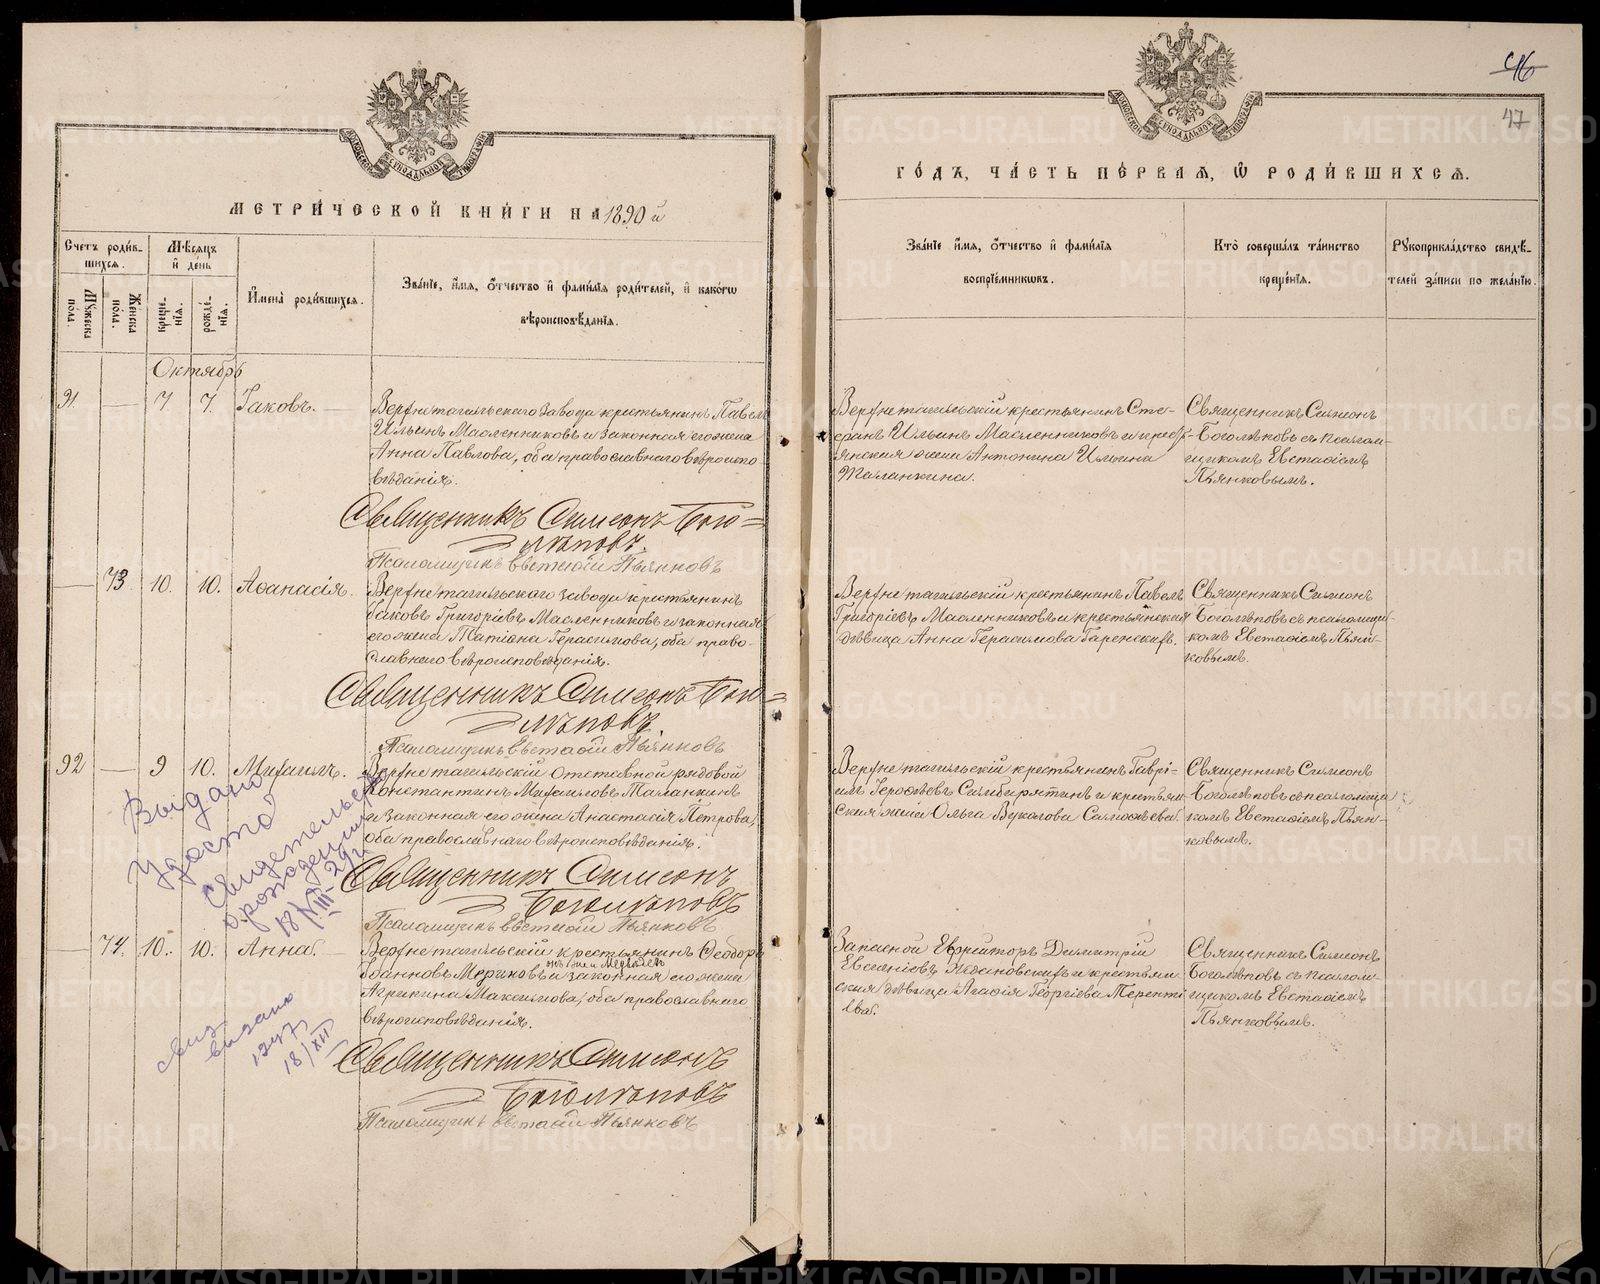 МЕТРИ́ЧЕСКОЙ КНИ́ГИ НА 1890 й
Счетъ роди́в-
шихсѧ.
Мѣсѧцъ
и҆ де́нь
Мꙋжеска
пола.
Женска
пола.
креще-
нїѧ.
рожде́-
нїѧ.
И҆мена̀ роди́вшихсѧ.
Зва́нїе, и҆́мѧ, ѻ҆́тчество и҆ фамилїѧ роди́телей, и҆ како́гѡ
вѣроисповѣ́данїѧ.
Октябрь
91. — 7 7. Іаковъ. —
Верхнетагильскаго завода крестьянинъ Павелъ
Ильинъ Масленниковъ и законная его жена
Анна Павлова, оба православнаго вѣроиспо-
вѣданія.
Священникъ Симеонъ Бого=
лѣповъ.
Псаломщикъ Евстафій Пьянковъ
— 73. 10. 10. Аѳанасія.
Верхнетагильскаго завода крестьянинъ
Іаковъ Григоріевъ Масленниковъ и законная
его жена Татіана Герасимова, оба право-
славнаго вѣроисповѣданія.
Священникъ Симеонъ Бого=
лѣповъ
Псаломщикъ Евстафій Пьянковъ
92 — 9 10. Михаилъ.
Верхнетагильскій отставной рядовой
Константинъ Михаиловъ Маланкинъ
и законная его жена Анастасія Петрова,
оба православнаго вѣроисповѣданія.
Священникъ Симеонъ
Боголѣповъ
Псаломщикъ Евстафій Пьянковъ
Выдано
удост
свидетельс
о рождении
18/VIII-29г
— 74. 10. 10. Анна.
Верхнетагильскій крестьянинъ Ѳеодоръ
Іоанновъ Мериковъ и законная его жена
Агрипина Максимова, оба православнаго
вѣроисповѣданія.
Священникъ Симеонъ
Боголѣповъ
Псаломщикъ Евстафій Пьянковъ
выдано
18/XII
46
47
ГО́ДЪ, ЧА́СТЬ ПЕ́РВАѦ, Ѡ҆ РОДИ́ВШИХСѦ.
Зва́нїе и҆́мѧ, ѻ҆́тчество и҆ фами́лїѧ
воспрїе́мниковъ.
Кто̀ соверша́лъ та́инство
креще́нїѧ.
Рꙋкоприкла́дство свидѣ́-
телей за́писи по жела́нїю.
Верхнетагильскій крестьянинъ Сте-
фанъ Ильинъ Масленниковъ и кресть-
янская жена Антонина Ильина
Маланкина.
Священникъ Симеонъ
Боголѣповъ съ псалом-
щикомъ Евстафіемъ
Пьянковымъ.
Верхнетагильскій крестьянинъ Павелъ
Григоріевъ Масленниковъ и крестьянская
дѣвица Анна Герасимова Гаренскихъ.
Священникъ Симеонъ
Боголѣповъ съ псаломщи-
комъ Евстафіемъ Пьян-
ковымъ.
Верхнетагильскій крестьянинъ Гаврі-
илъ Героѳеевъ Симбирятинъ и крестьян-
ская жена Ольга Вуколова Самоѳеева.
Священникъ Симеонъ
Боголѣповъ съ псаломщи-
комъ Евстафіемъ Пьян-
ковымъ.
Запасной Ефрейторъ Димитрій
Евгеніевъ Ждановскихъ и крестьян-
ская дѣвица Агафія Георгіева Теренті-
ева.
Священникъ Симеонъ
Боголѣповъ съ псалом-
щикомъ Евстафіемъ
Пьянковымъ.
METRIKI.GASO-URAL.RU